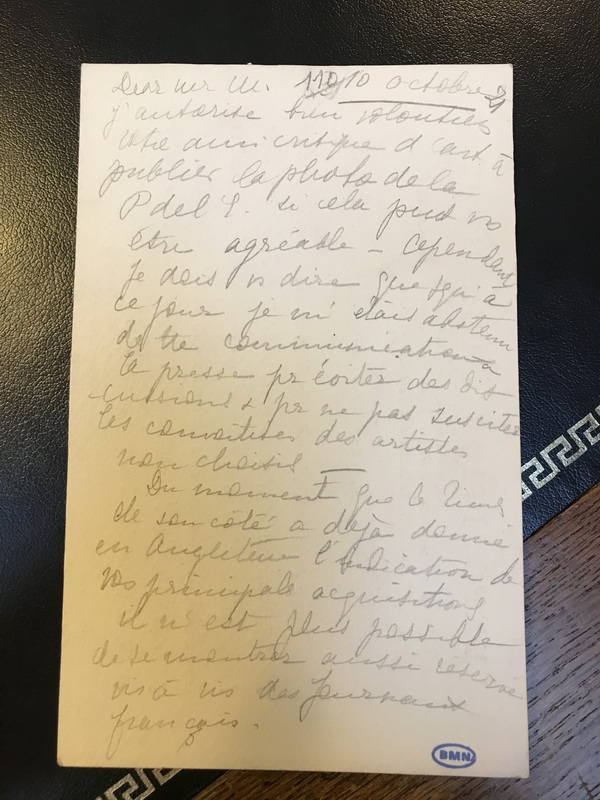 Dear Mr M. 10 octobre 21
j'autorise bien volontiers
votre ami critique d'art à
publier la photo de la
P del S. si cela peut vs
être agréable – cependant
je dois vs dire que jsqu'à
ce jour je m'étais abstenu
de tte communication à
la presse pr éviter des dis-
cussions & pr ne pas susciter
les convoitises des artistes
non choisis —
Du moment que le Times
de son côté a déjà donné
en Angleterre l'indication de
vos principales acquisitions
il n'est plus possible
de se montrer aussi réservé
vis à vis des journaux
français.
BMN